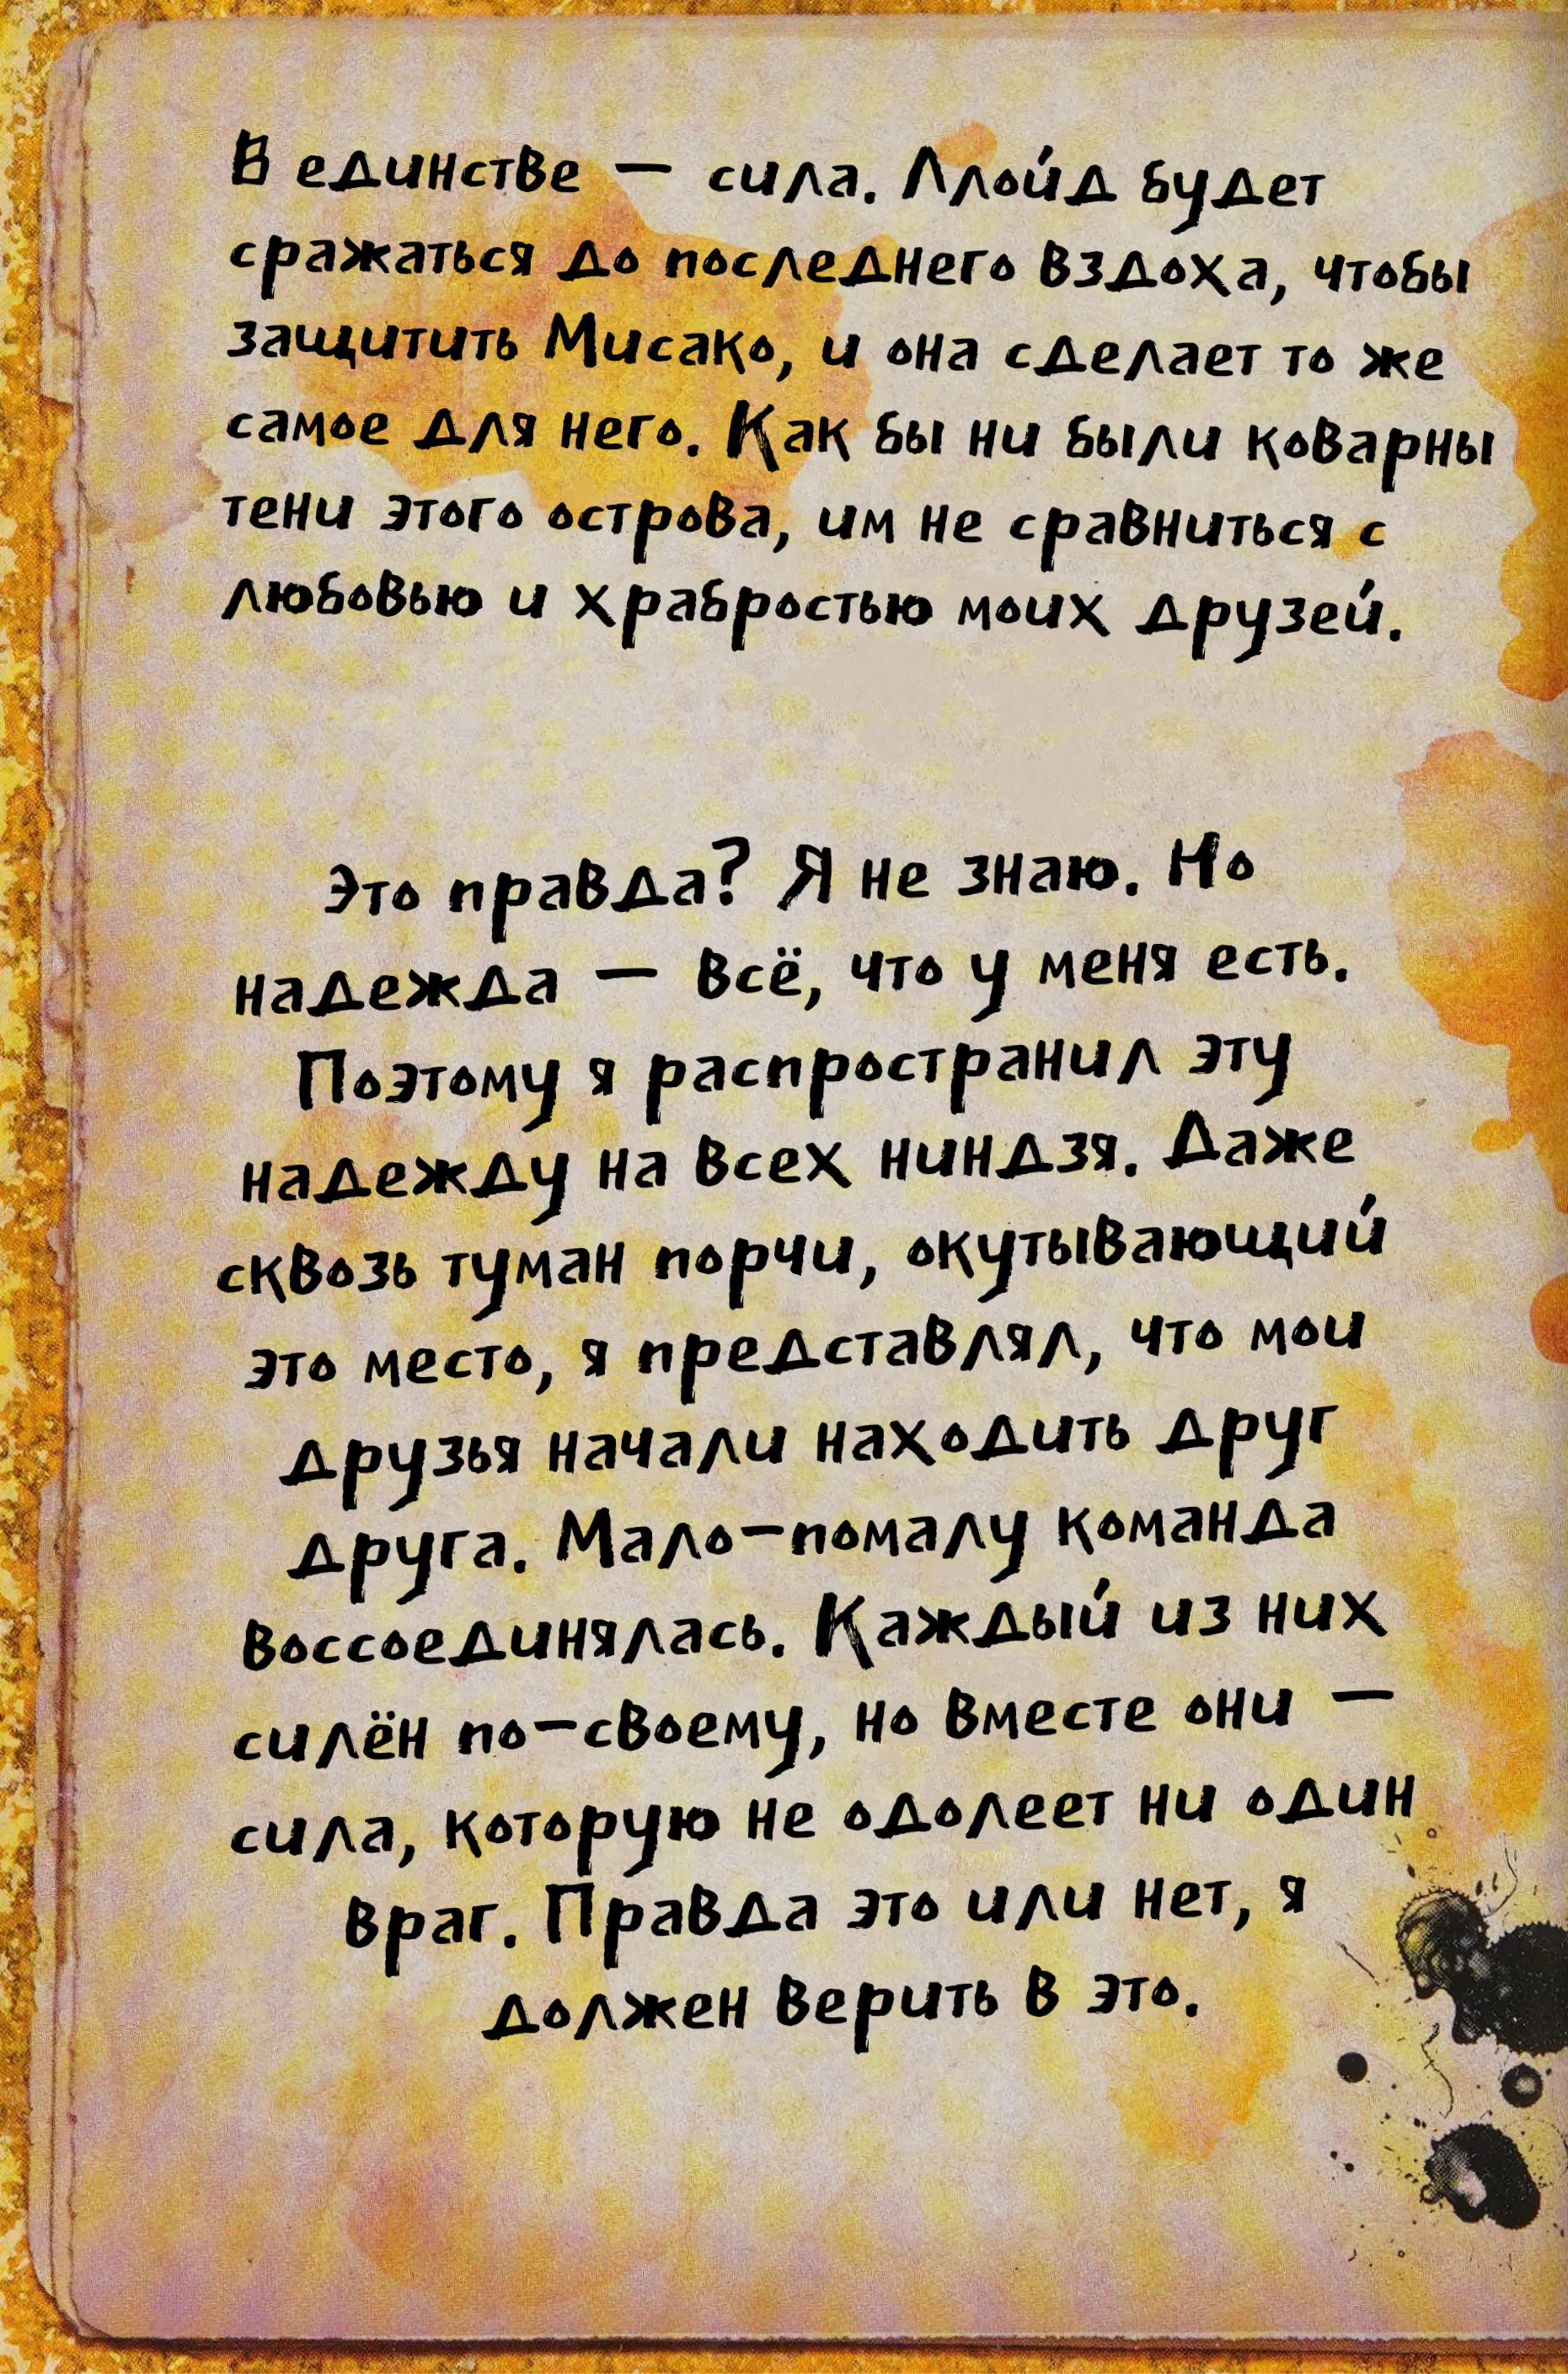 В единстве — сила. Ллойд будет
сражаться до последнего вздоха, чтобы
защитить Мисако, и она сделает то же
самое для него. Как бы ни были коварны
тени этого острова, им не сравниться с
любовью и храбростью моих друзей.
Это правда? Я не знаю. Но
надежда — всё, что у меня есть.
Поэтому я распространил эту
надежду на всех ниндзя. Даже
сквозь туман порчи, окутывающий
это место, я представлял, что мои
друзья начали находить друг
друга. Мало-помалу команда
воссоединялась. Каждый из них
силён по-своему, но вместе они —
сила, которую не одолеет ни один
враг. Правда это или нет, я
должен верить в это.